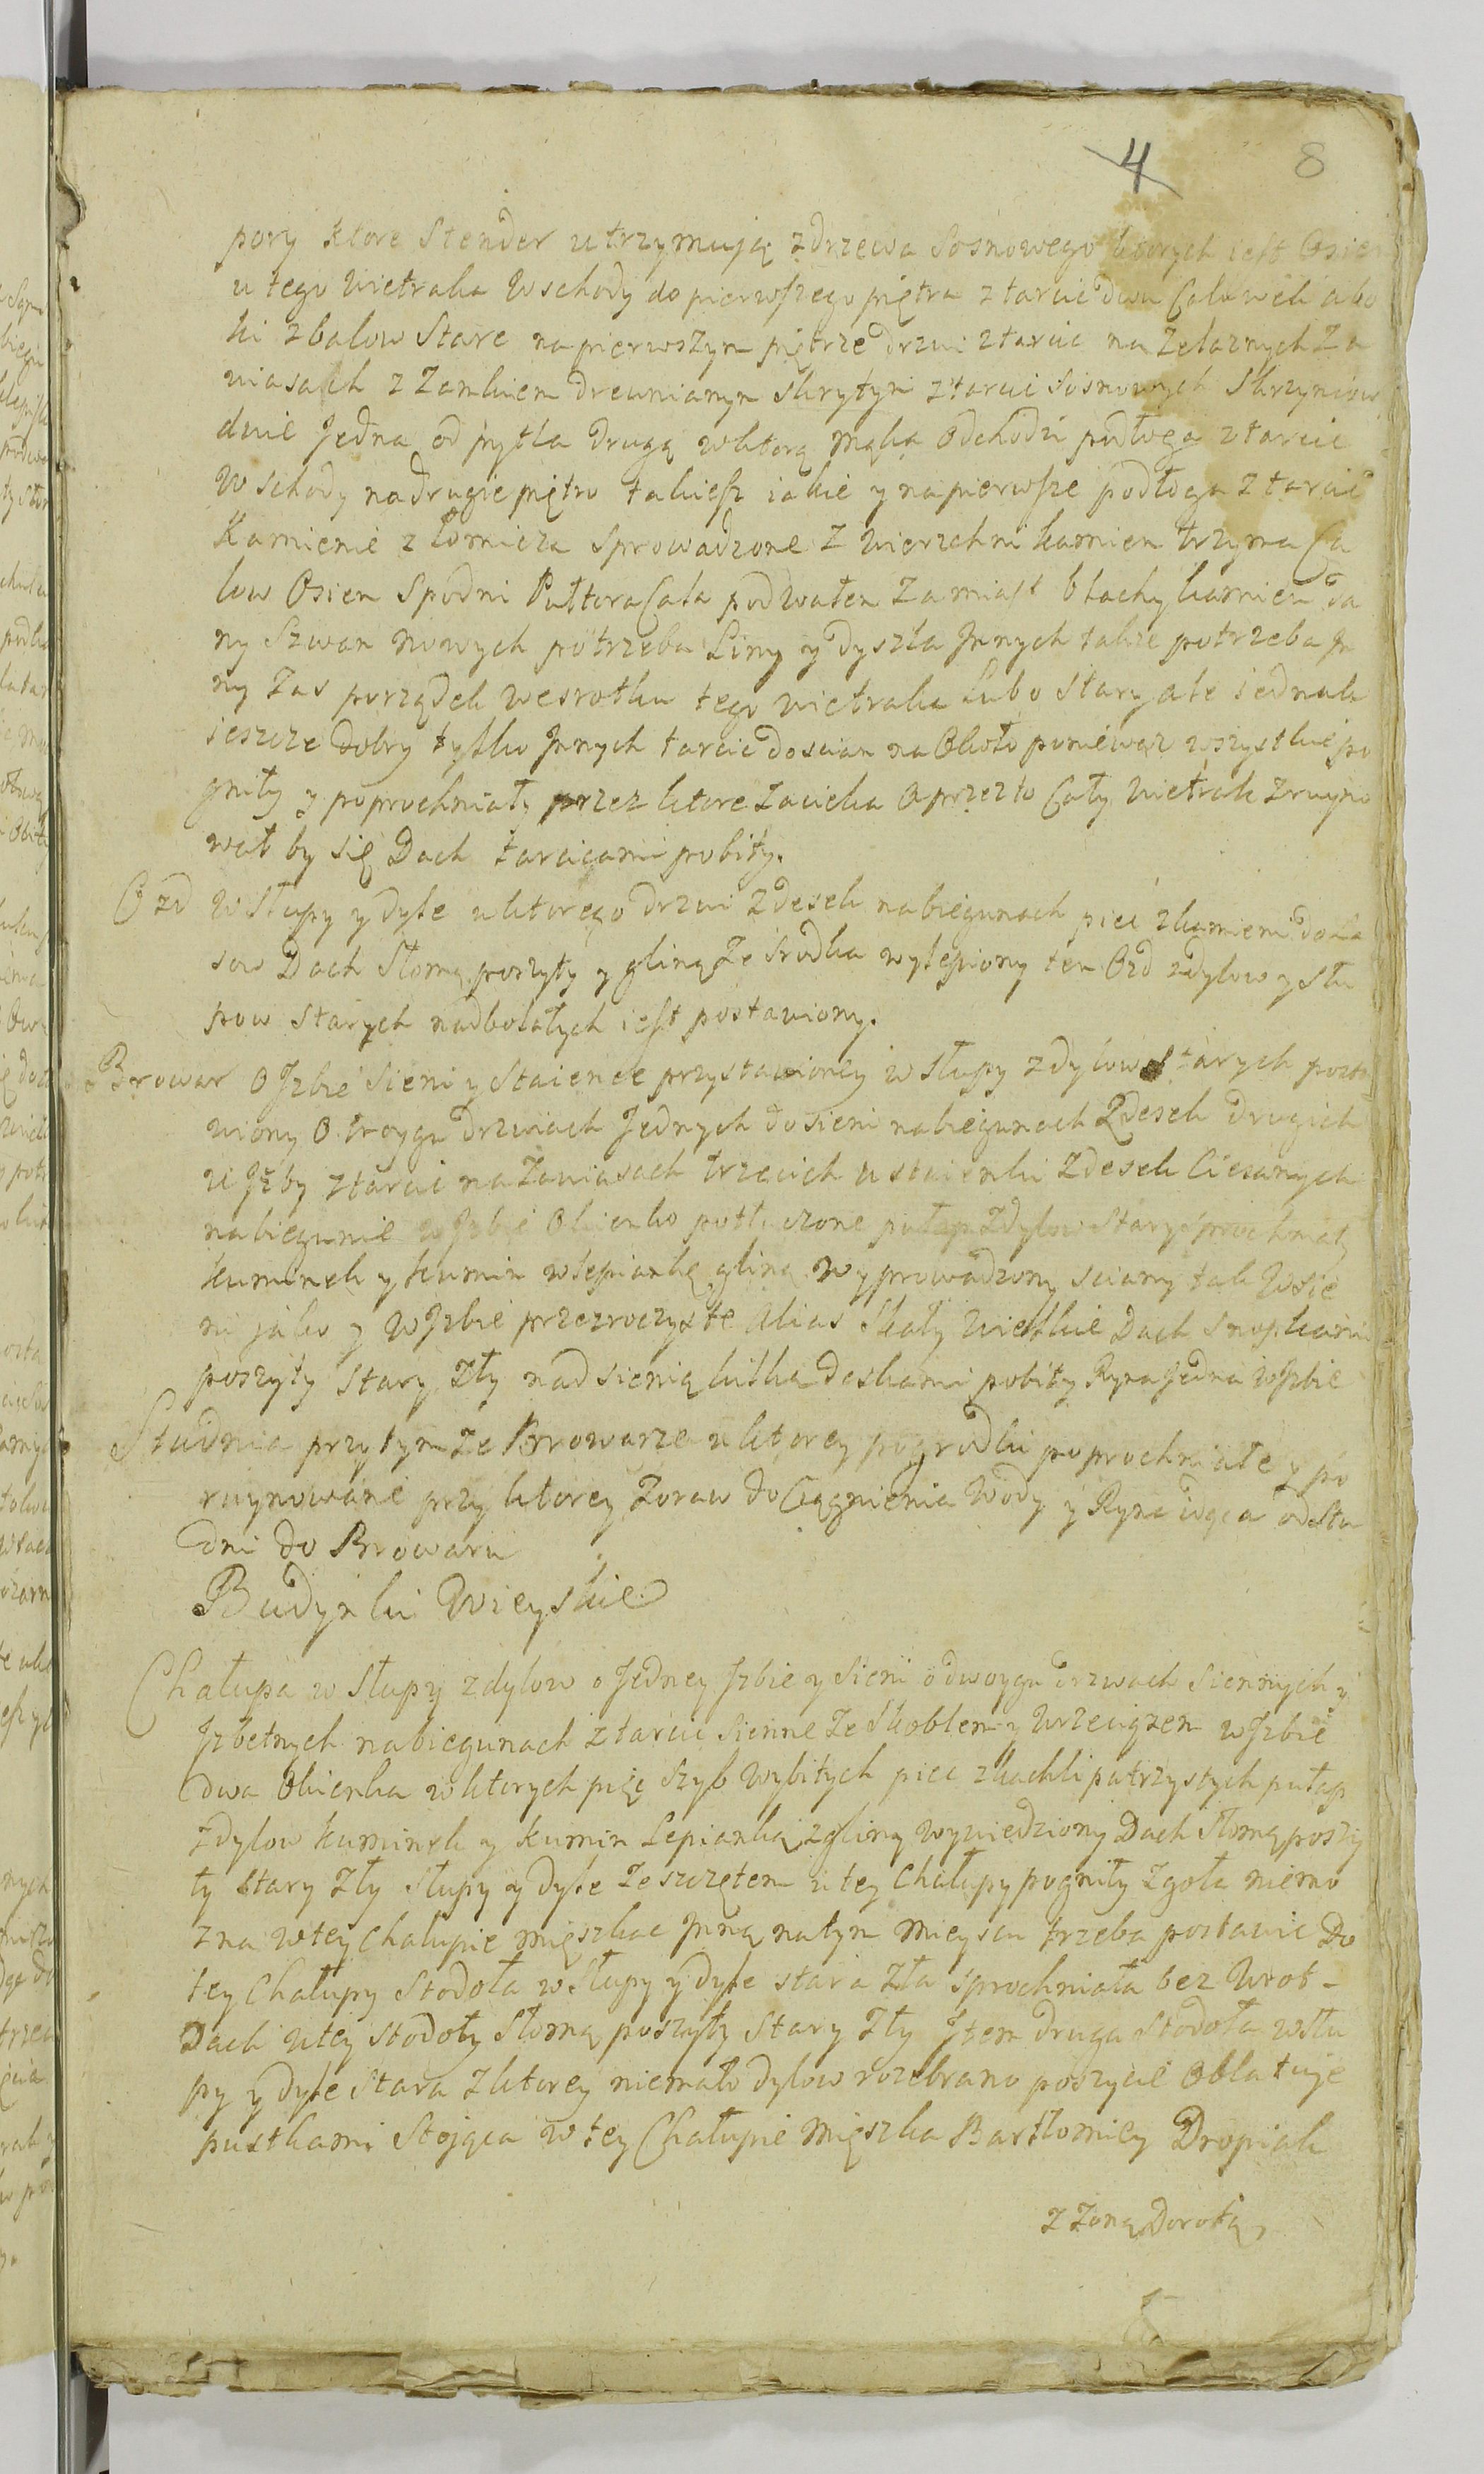 4 8
pory ktore Stender utrzymują z drzewa Sosnowego ktorych iest Osiem
u tego wietraka Wschody do pierwszego piętra z tarcic dwu Calowek a bo
ki z balow Stare na pierwszym piętrze drzwi z tarcic na Zelaznych Za
wiasach z Zamkiem drewnianym skrytym z tarcic sosnowych Skrzyniow
dwie Jedna od pytla drugą w ktorą mąka odchodzi podłoga z tarcic
Wschody na drugie piętro takiesz iakie y na pierwsze podłoga z tarcic
Kamienie z Łomicza Sprowadzone Z wierzchni kamien trzyma Ca
low Osiem Spodni Pułtora Cala pod wałem Zamiast blachy kamien da
ny Szwan nowych potrzeba Liny y dyszla Jnnych takze potrzeba Jn
ny Zas porządek we srotku tego wietraka Lubo Stary ale iednak
ieszcze dobry tylko Jnnych tarcic do scian na Około poniewaz wszystkie po
gniły y poprochniały przez ktore Zacieka a przez to Cały wietrak Zruyno
wał by się Dach tarcicami pobity.
Ozd w Słupy y dyle u ktorego drzwi z desek na biegunach piec z kamieni do La
sow Dach Słomą poszyty y gliną Ze srodka wylepiony ten Ozd z dylow y słu
pow starych nadbolałych iest postawiony.
Browar o Jzbie Sieni y Staience przystawioney w słupy z dylow starych posta
wiony o troygu drzwiach Jednych do sieni na biegunach Z desek drugich
u Jzby z tarcic na Zawiasach trzecich u staienki Z desek Ciesanych
na biegunie w Jzbie Okienko potłuczone pułap Z dylow Stary sprochniały
kuminek y kumin w lepiankę gliną wyprowadzony sciany tak w sie
ni jako y w Jzbie przezroczyste alias Skały wielkie Dach Snopkami
poszyty Stary Zły nad sienią kilką deskami pobity Ryna Jedna w Jzbie
Studnia przy tym Ze Browarze u ktorey pogrodki poprochniałe y po
ruynowane przy ktorey Zoraw do Ciągnienia Wody y Ryna idąca od Stu
dni do Browaru
Budynki Wieyskie
Chałupa w Słupy z dylow o Jedney Jzbie y Sieni o dwoygu drzwach Siennych y
Jzbetnych na biegunach z tarcic Sienne Ze Skoblem y wrzeciązem w Jzbie
dwa Okienka w ktorych pięc Szyb wybitych piec z kachli patrzystych pułap
z dylow kuminek y kumin Lepianką z gliny wywiedziony Dach słomą poszy
ty stary Zły Słupy y dyle Ze szczętem u tey Chałupy pogniły Zgoła niemo
zna w tey chałupie mięszkac Jnną na tym mieyscu trzeba postawic Do
tey Chałupy Stodoła w Słupy y dyle stara Zła sprochniała bez Wrot -
Dach u tey stodoły Słomą poszyty Stary Zły Jtem druga Stodoła w słu
py y dyle Stara z ktorey niemało dylow rozebrano poszycie Oblatuje
pustkami Stojąca w tey Chałupie mięszka Bartłomiey Dropiak
z Zoną Dorotą,